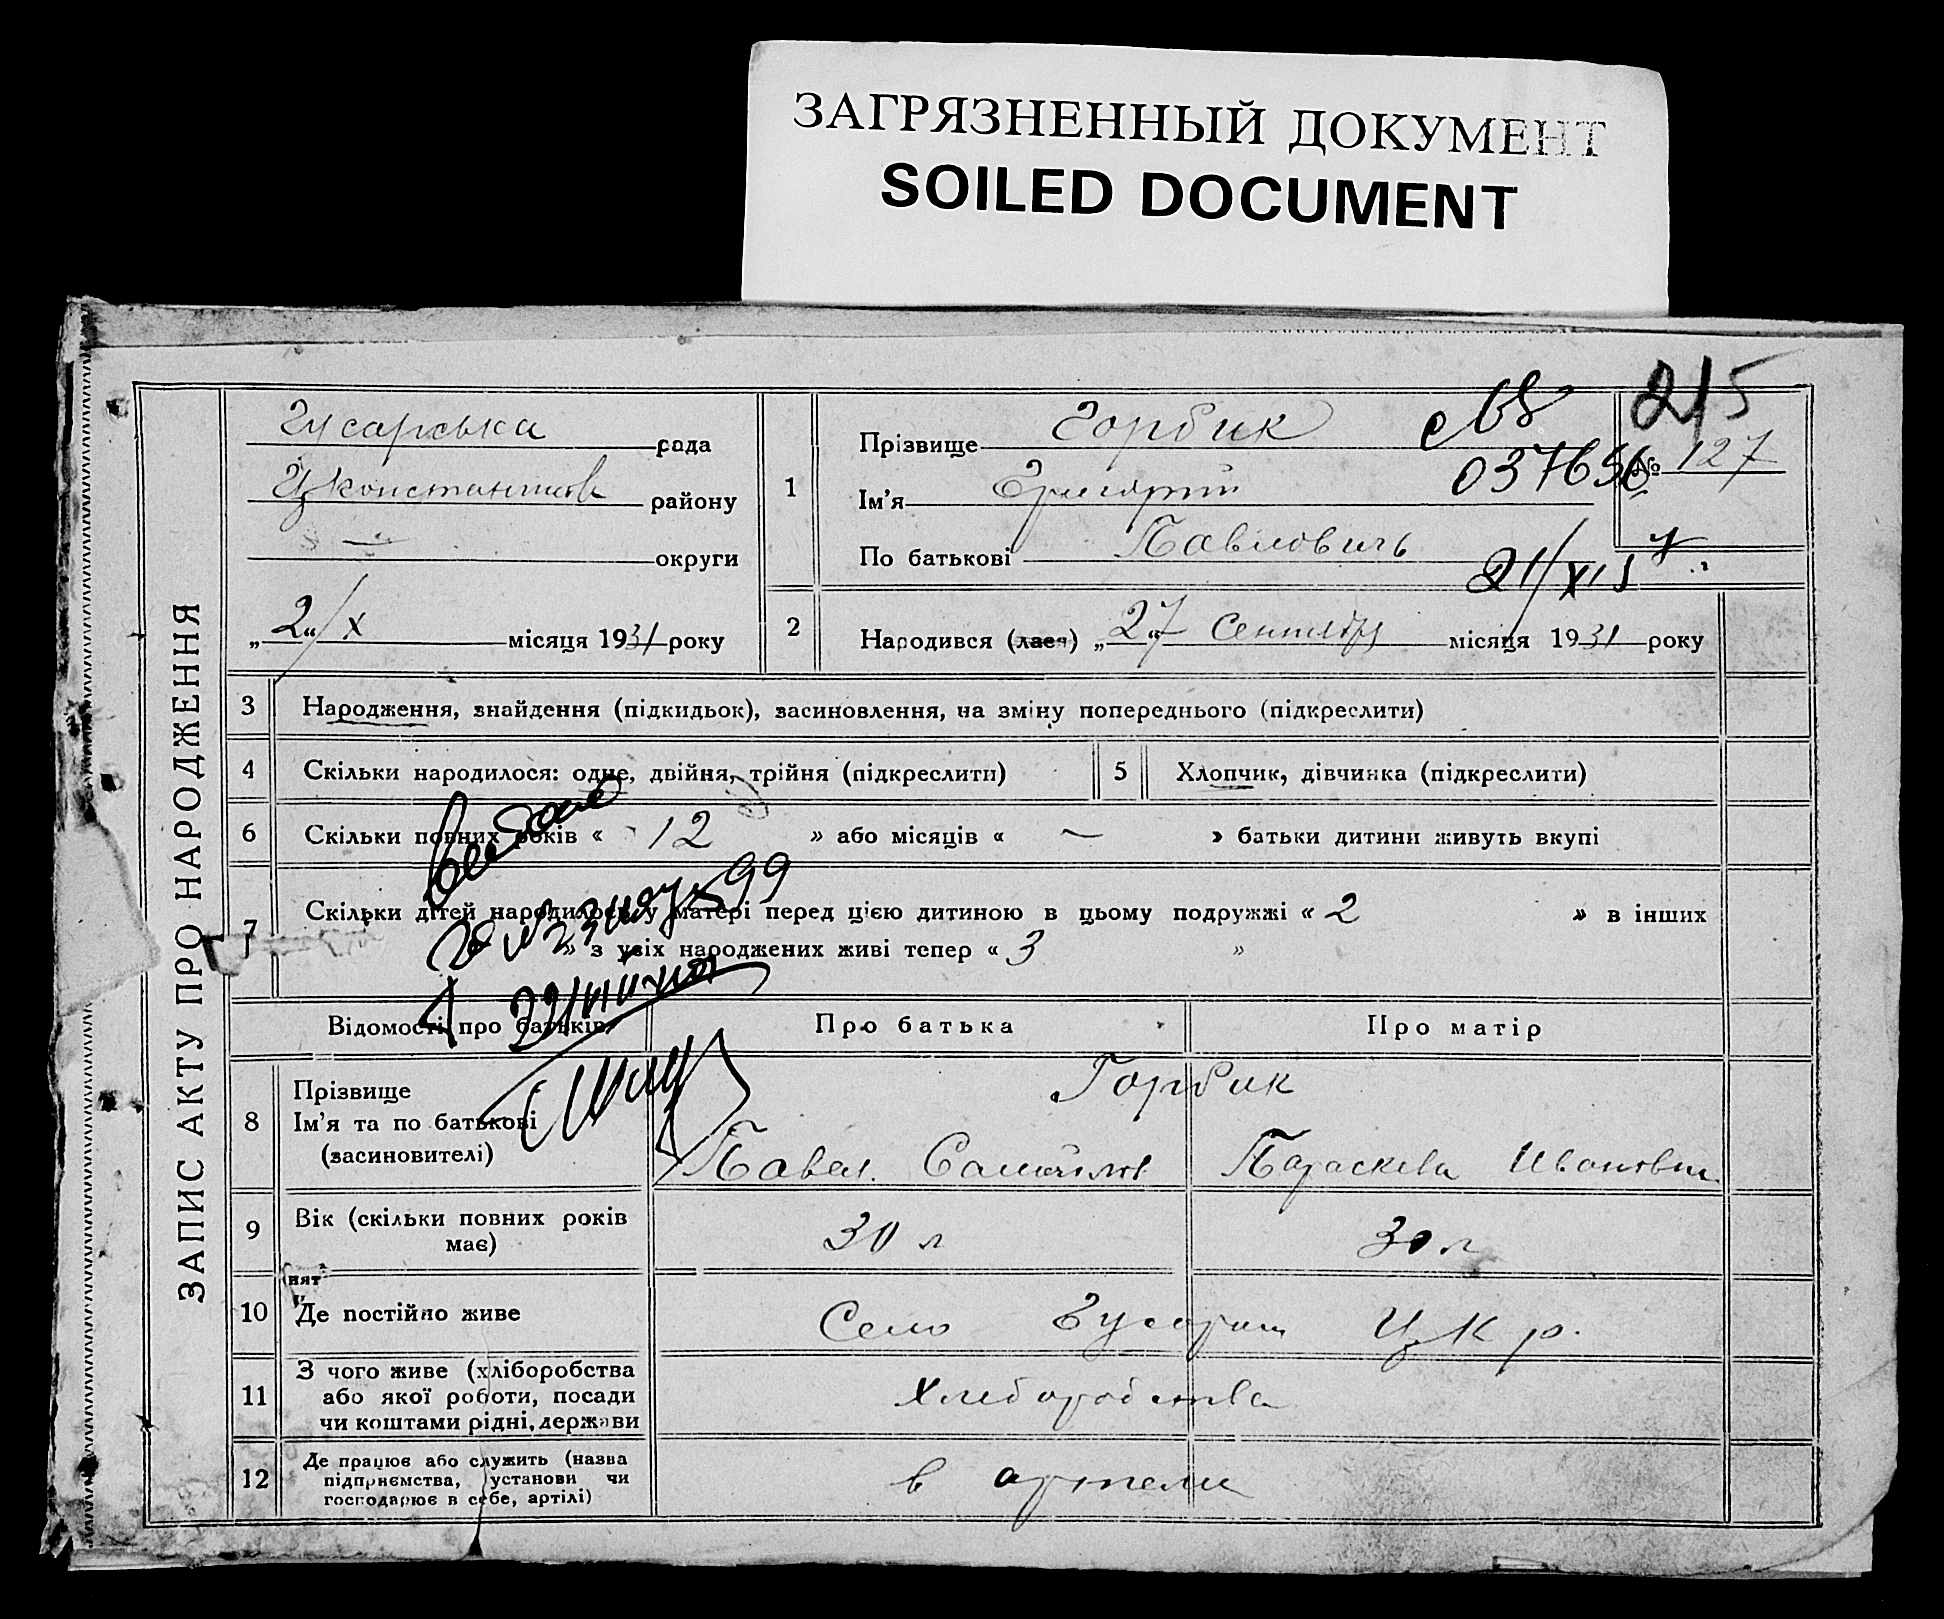 ЗАГРЯЗНЕННЫЙ ДОКУМЕНТ
SOILED DOCUMENT
ЗАПИС АКТУ ПРО НАРОДЖЕННЯ
215
Гусарська рада
району
округи
„2“/X місяця 1931 року
1
Прізвище Горбик
Ім'я Григорій
По батькові Павлович
037656
№ 127
21/XII
2
Народився (лася) „27“ Сентября місяця 1931 року
3 Народження, знайдення (підкидьок), засиновлення, на зміну попереднього (підкреслити)
4 Скільки народилося: одне, двійня, трійня (підкреслити)
5 Хлопчик, дівчинка (підкреслити)
6 Скільки повних років « 12 » або місяців « — » батьки дитини живуть вкупі
7 Скільки дітей народилось у матері перед цією дитиною в цьому подружжі « 2 » в інших
» з усіх народжених живі тепер « 3 »
Відомості про батьків
Про батька
Про матір
8 Прізвище
Ім'я та по батькові
(засиновителі)
Горбик
Павел Самойлов
Параскева Ивановна
9 Вік (скільки повних років
має)
30 л
30 л
10 Де постійно живе
Село ЦК р.
11 З чого живе (хліборобства
або якої роботи, посади
чи коштами рідні, держави
Хлеборобства
12 Де працює або служить (назва
підприємства, установи чи
господарює в себе, артілі)
в артели